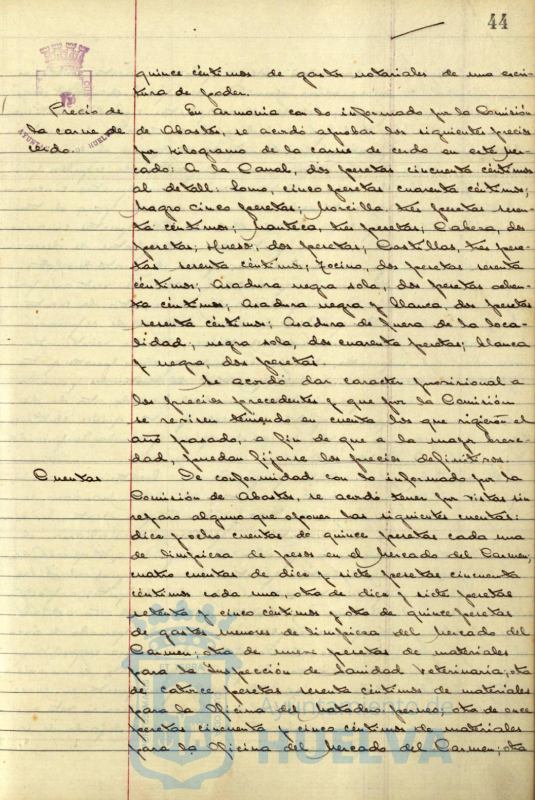 44
quince céntimos de gastos notariales de una escri-
tura de poder.
Precio de
la carne de
cerdo.
En armonía con lo informado por la Comisión
de Abastos, se acordó aprobar los siguientes precios
por kilogramo de la carne de cerdo en este mer-
cado: A la Canal, dos pesetas cincuenta céntimos
al detall: lomo, cinco pesetas cuarenta céntimos;
magro cinco pesetas; Morcilla tres pesetas sesen-
ta céntimos; Manteca, tres pesetas; Cabeza, dos
pesetas; Hueso, dos pesetas; Costillas, tres pese-
tas sesenta céntimos; Tocino, dos pesetas sesenta
céntimos; Asadura negra sola, dos pesetas ochen-
ta céntimos; Asadura negra y blanca, dos pesetas
sesenta céntimos; Asadura de fuera de la loca-
lidad, negra sola, dos cuarenta pesetas; blanca
y negra, dos pesetas.
Se acordó dar caracter provisional a
los precios precedentes y que por la Comisión
se revisen teniendo en cuenta los que rigieron el
año pasado, a fin de que a la mayor breve-
dad, puedan fijarse los precios definitivos.
Cuentas
De conformidad con lo informado por la
Comisión de Abastos, se acordó tener por vistas sin
reparo alguno que oponer las siguientes cuentas:
diez y ocho cuentas de quince pesetas cada una
de limpieza de pesos en el Mercado del Carmen;
cuatro cuentas de diez y siete pesetas cincuenta
céntimos cada una, otra de diez y siete pesetas
setenta y cinco céntimos y otra de quince pesetas
de gastos menores de limpieza del Mercado del
Carmen; otra de nueve pesetas de materiales
para la Inspección de Sanidad Veterinaria; otra
de catorce pesetas sesenta céntimos de materiales
para la Oficina del Matadero ; otra de once
pesetas cincuenta y cinco céntimos de materiales
para la Oficina del Mercado del Carmen; otra
Ayuntamiento de
HUELVA